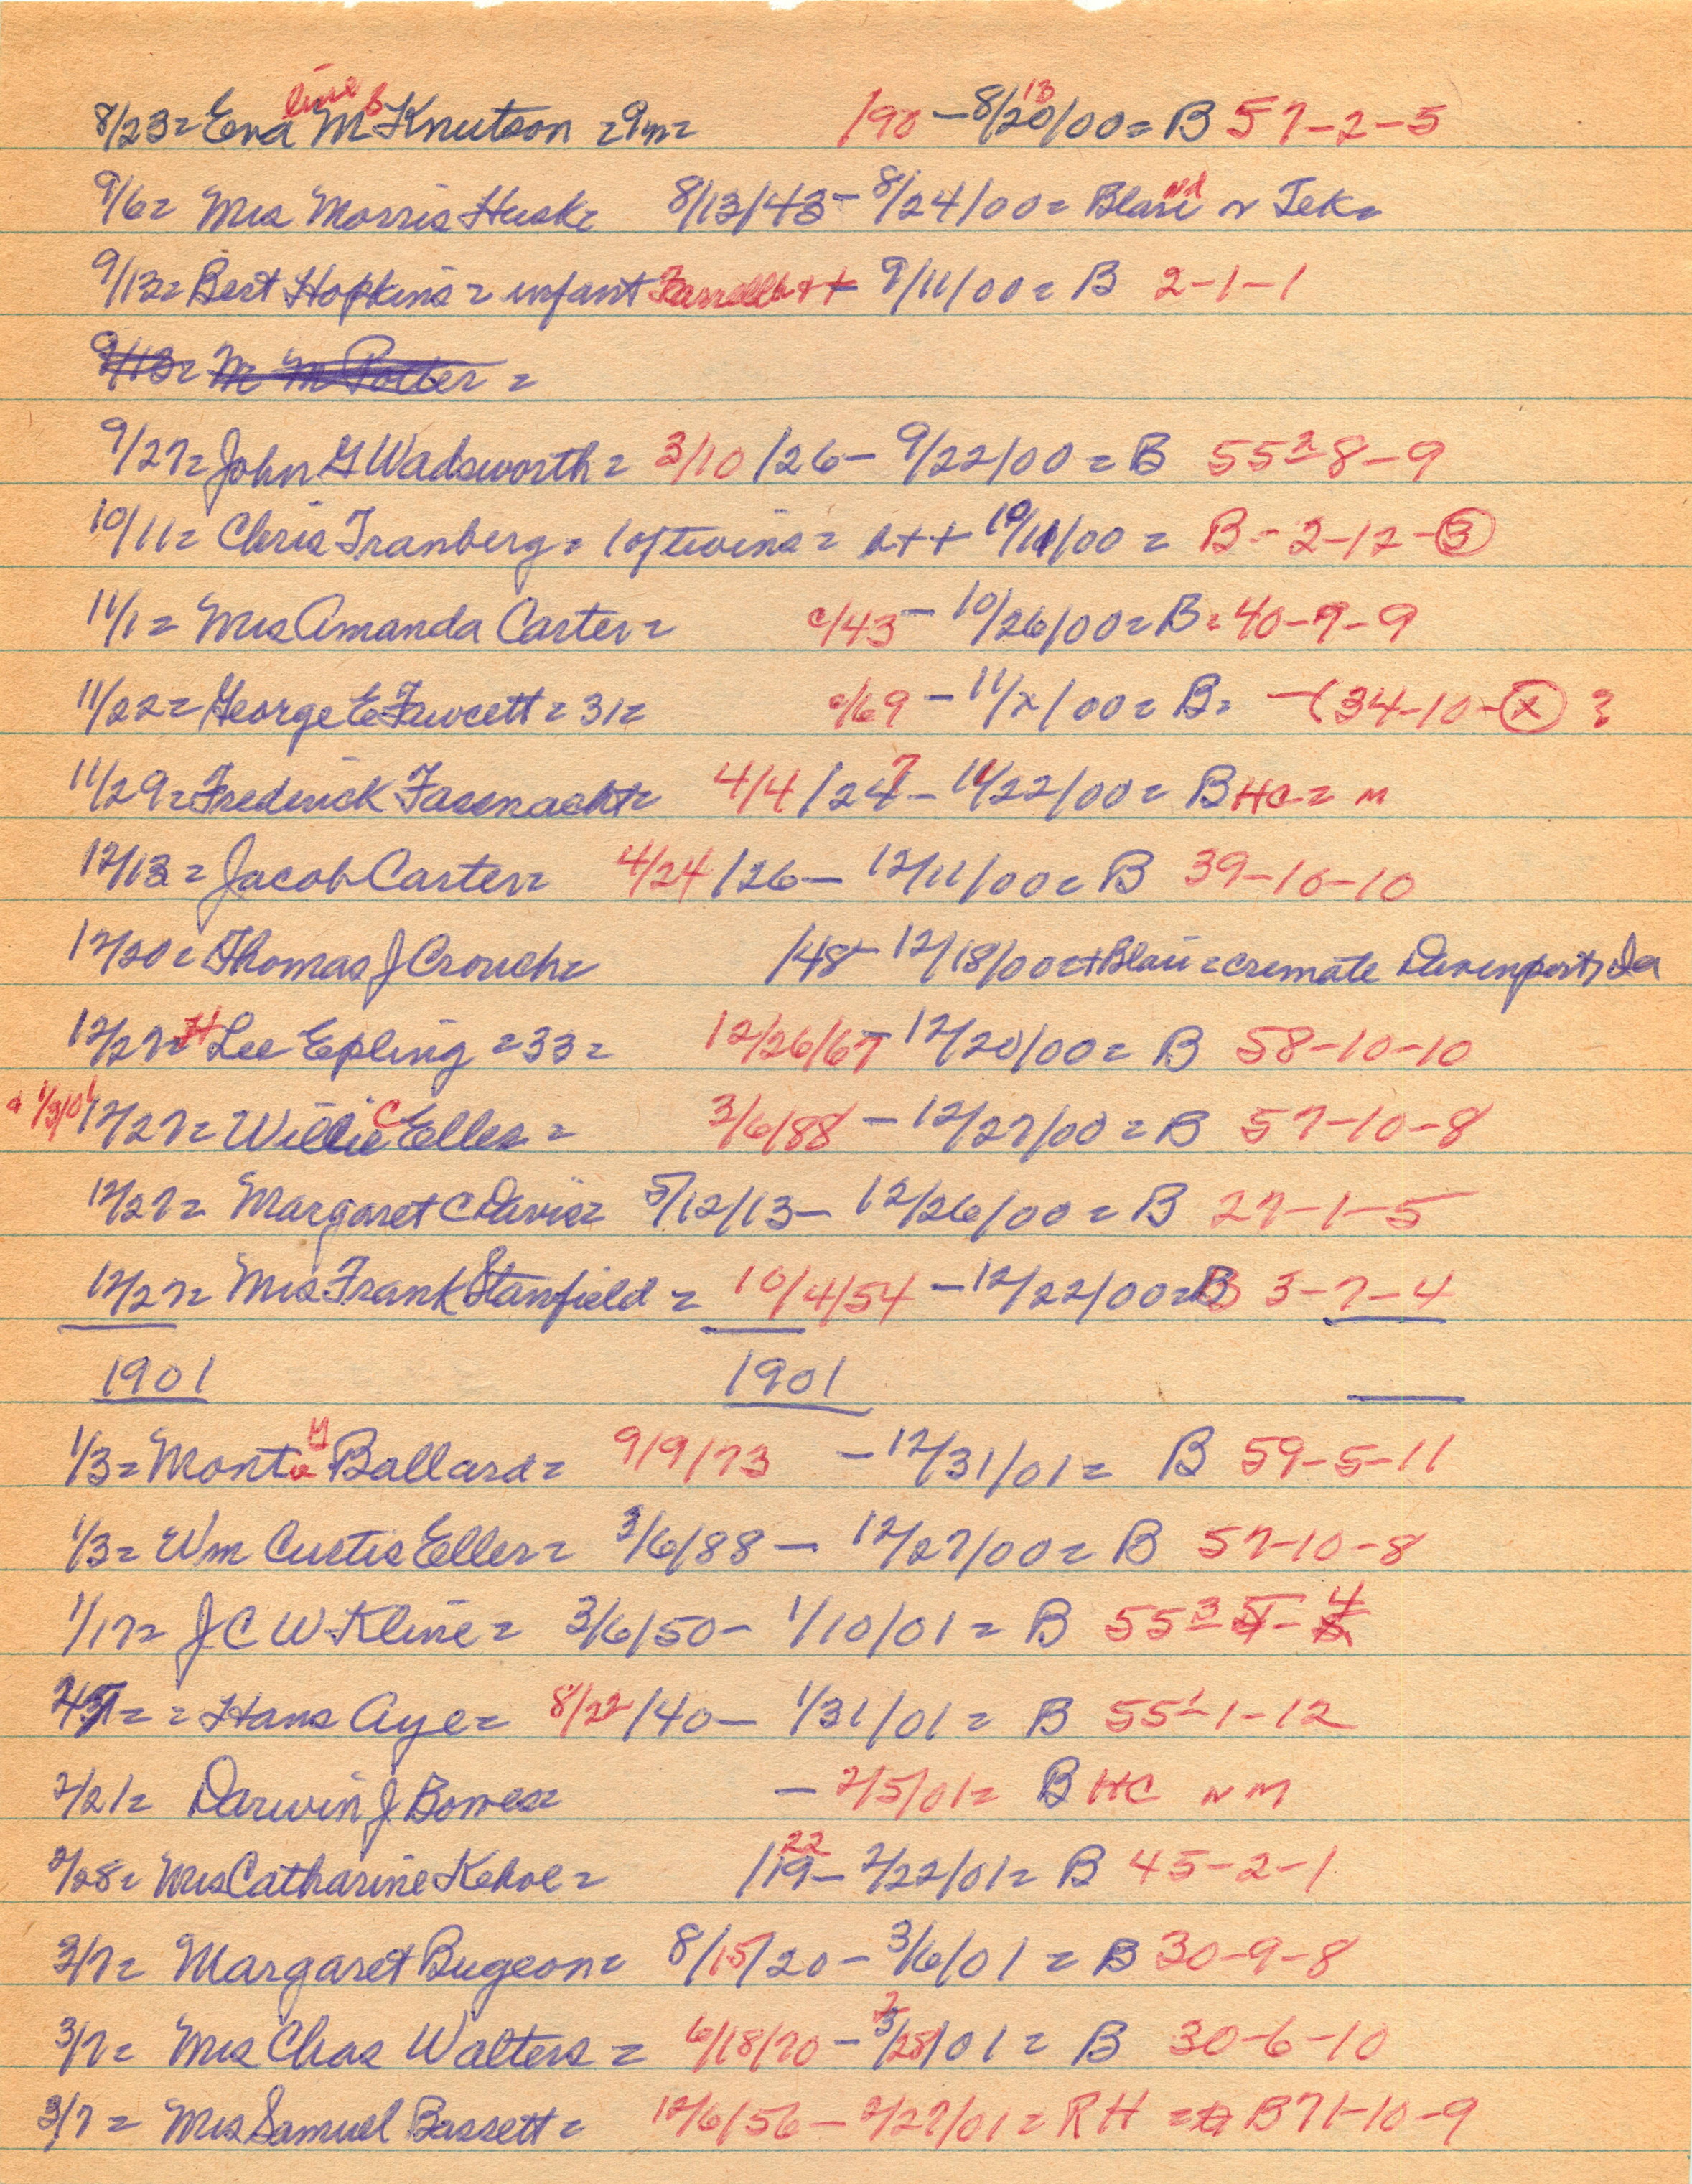 8/23= Eva line M B Knutson = 9m= /90 - 8/20/00= B 57-2-5 13
9/6= Mrs Morris Husk= 8/13/43 - 8/24/00= Blair nd Tek=
9/13= Bert Hopkins = infant b++ 9/11/00= B 2-1-1
9/13= M M Potter =
9/27= John G Wadsworth= 3/10/26- 9/22/00= B 55 2-8-9
10/11= Chris Tranberg= 1 of twins= b++ 10/11/00= B-2-12-3
11/1= Mrs Amanda Carter= c/43 - 10/26/00= B= 40-9-9
11/22= George E Fawcett= 31= c/69 - 11/x/00= B= -(34-10-x ?
11/29= Frederick Fasenacht= 4/4/24 7 - 11/22/00= B HC= m
12/13= Jacob Carter= 4/24/26- 12/11/00= B 39-10-10
12/20= Thomas J Crouch= /48- 12/18/00= +Blair= cremate Davenport, Ia
12/27= H Lee Epling =33= 12/26/67 - 12/20/00= B 58-10-10
1/3/01 12/27= Willie C Eller= 3/6/88 - 12/27/00= B 57-10-8
12/27= Margaret C Davis= 5/12/13- 12/26/00= B 27-1-5
12/27= Mrs Frank Stanfield= 10/4/54 - 12/22/00= B 3-7-4
1901 1901
1/3= Monta M Ballard= 9/9/73 - 12/31/01= B 59-5-11
1/3= Wm Curtis Eller= 3/6/88 - 12/27/00= B 57-10-8
1/17= J C W Kline= 3/6/50- 1/10/01= B 55 3-5-4
= Hans Aye= 8/22/40- 1/31/01= B 55 1-1-12
2/21= Darwin J Bowes= - 2/5/01= B HC n m
2/28= Mrs Catharine Kehoe= /19 22 - 2/22/01= B 45-2-1
3/7= Margaret Bugeon= 8/15/20- 3/6/01= B 30-9-8
3/7= Mrs Chas Walters= 6/18/70 - 3/28/01= B 30-6-10 2
3/7= Mrs Samuel Bassett= 12/6/56 - 2/27/01= RH = B 71-10-9